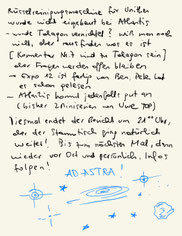 Rüsselreinigungsmaschine für Unither
wurde nicht eingebaut bei Atlantis
- wurde Talagon vernichtet? will man noch
nicht, aber rausfinden was es ist
[Kommentar N:it wird zu Talagon sein]
aber Fragen werden offen bleiben
- Expo 12 ist fertig von Ben, Pete hat
es schon gelesen
- Atlantis kommt jedenfalls gut an
(bisher 2 Miniserien von Uwe TOP)
Diesmal endet der Bericht um 21⁰⁰ Uhr,
aber der Stammtisch ging natürlich
weiter! Bis zum nächsten Mal, dann
wieder vor Ort und persönlich, Infos
folgen!
AD ASTRA!